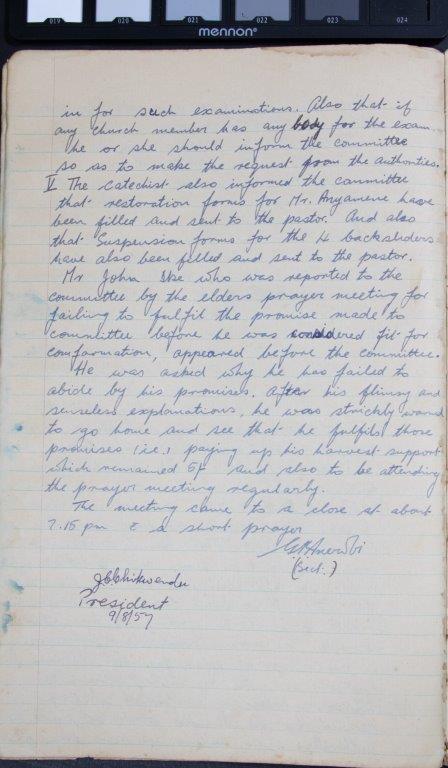 019 020 021 022 023 024
mennon®
in for such examinations. Also that if
any church member has any body for the exam.
he or she should inform the committee
so as to make the request from the authorities.
V The catechist also informed the committee
that restoration forms for Mr. Anyamene have
been filled and sent to the pastor. And also
that Suspension forms for the 4 backsliders
have also been filled and sent to the pastor.
Mr John who was reported to the
committee by the elders prayer meeting for
failing to fulfil the promise made to
committee before he was considered fit for
confarmation, appeared before the committee.
He was asked why he has failed to
abide by his promises. After his flimsy and
senseless explanations, he was strickly warnd
to go home and see that he fulfils those
promises (i.e.) paying up his harvest support
which remained 5/- and also to be attending
the prayer meeting regularly.
The meeting came to a close at about
7.15 pm & a short prayer
(Sect.)
President
9/8/57